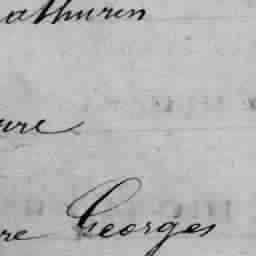 athurin
ure
re Georges